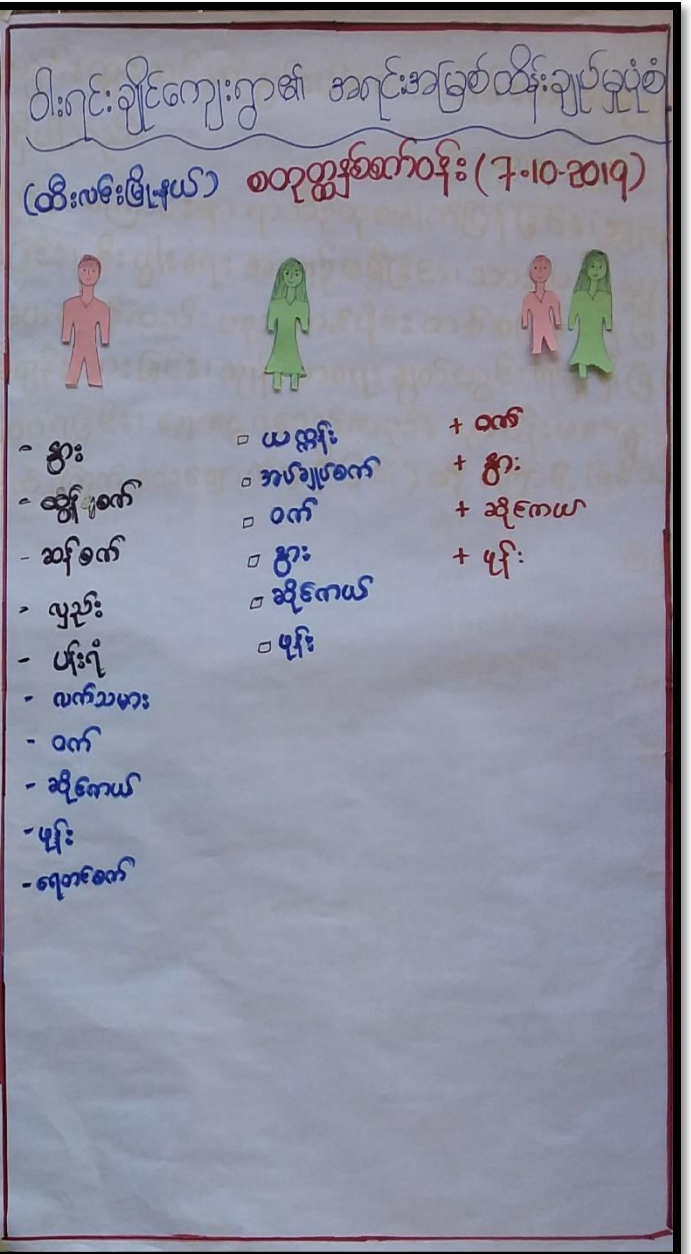 ဝါးရင်းချိုင်ကျေးရွာ၏ အရင်းအမြစ်ထိန်းချုပ်မှုပုံစံ
(ထီးလင်းမြို့နယ်) စတုတ္ထနှစ်စက်ဝန်း (7-10-2019)
- နွား
- ထွန်စက်
- ဆန်စက်
- လှည်း
- ပန်းရံ
- လက်သမား
- ဝက်
- ဆိုင်ကယ်
- ဖုန်း
- ရေတင်စက်
□ ယက္ကန်း
□ အပ်ချုပ်စက်
□ ဝက်
□ နွား
□ ဆိုင်ကယ်
□ ဖုန်း
+ ဝက်
+ နွား
+ ဆိုင်ကယ်
+ ဖုန်း